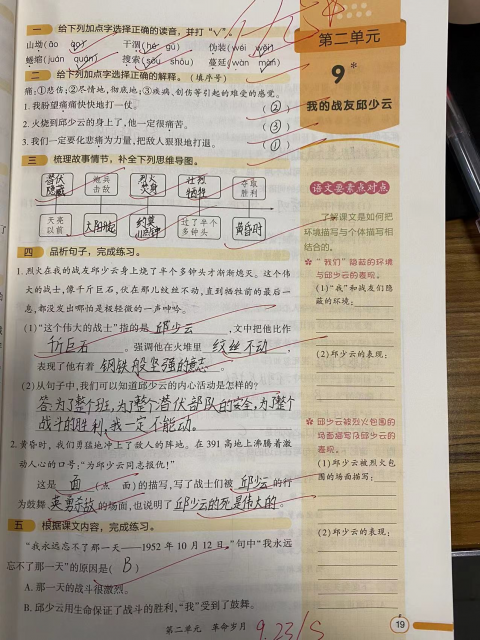 一 给下列加点字选择正确的读音，并打“√”。
山坳(āo ào) 干涸(hé gù) 伪装(wěi wēi)
蜷缩(juǎn quán) 搜索(sōu shōu) 蔓延(wàn màn)
二 给下列加点字选择正确的解释。(填序号)
痛:①悲伤;②尽情地,彻底地;③疾病、创伤等引起的难受的感觉。
1. 我盼望痛痛快快地打一仗。 (②)
2. 火烧到邱少云的身上了,他一定很痛苦。 (③)
3. 我们一定要化悲痛为力量,把敌人狠狠地打退。 (①)
三 梳理故事情节，补全下列思维导图。
潜伏隐蔽 炮兵击敌 烈火焚身 壮烈牺牲 夺取胜利
天亮以前 太阳升起 约莫 过了半个多钟头 黄昏时
四 品析句子，完成练习。
1. 烈火在我的战友邱少云身上烧了半个多钟头才渐渐熄灭。这个伟
大的战士,像千斤巨石,伏在那儿纹丝不动,直到牺牲前的最后一
息,都没发出哪怕是极轻微的一声呻吟。
(1)“这个伟大的战士”指的是 邱少云 ,文中把他比作
千斤巨石 ,强调他在火堆里 纹丝不动 ,
表现了他有着 钢铁般坚强的意志 。
(2)从句子中,我们可以知道邱少云的内心活动是怎样的?
答:为了整个班,为了整个潜伏部队的安全,为了整个
战斗的胜利,我一定不能动。
2. 黄昏时,我们勇猛地冲上了敌人的阵地。在 391 高地上沸腾着激
动人心的口号:“为邱少云同志报仇!”
这是 面 (点 面)的描写,写了战士们被 邱少云 的行
为鼓舞, 英勇杀敌 的场面,也说明了 邱少云的死是伟大的 。
五 根据课文内容，完成练习。
“我永远忘不了那一天——1952 年 10 月 12 日。”句中“我永远
忘不了那一天”的原因是( B )
A. 那一天的战斗很激烈。
B. 邱少云用生命保证了战斗的胜利,“我”受到了鼓舞。
第二单元 革命岁月
9.23
第二单元
9*
我的战友邱少云
语文要素点对点
了解课文是如何把
环境描写与个体描写相
结合的。
“我们”隐蔽的环境
与邱少云的表现。
(1)“我”和战友们隐
蔽的环境:
(2)邱少云的表现:
邱少云被烈火包围的
场面描写及邱少云的
表现。
(1)邱少云被烈火包
围的场面描写:
(2)邱少云的表现:
19